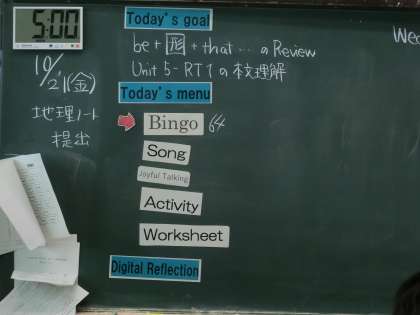 5:00
Today's goal
be + 形 + that … の Review
Unit 5 - RT1 の本文理解
10/21(金)
地理ノート
提出
Today's menu
Bingo 64
Song
Joyful Talking
Activity
Worksheet
Digital Reflection
Wed